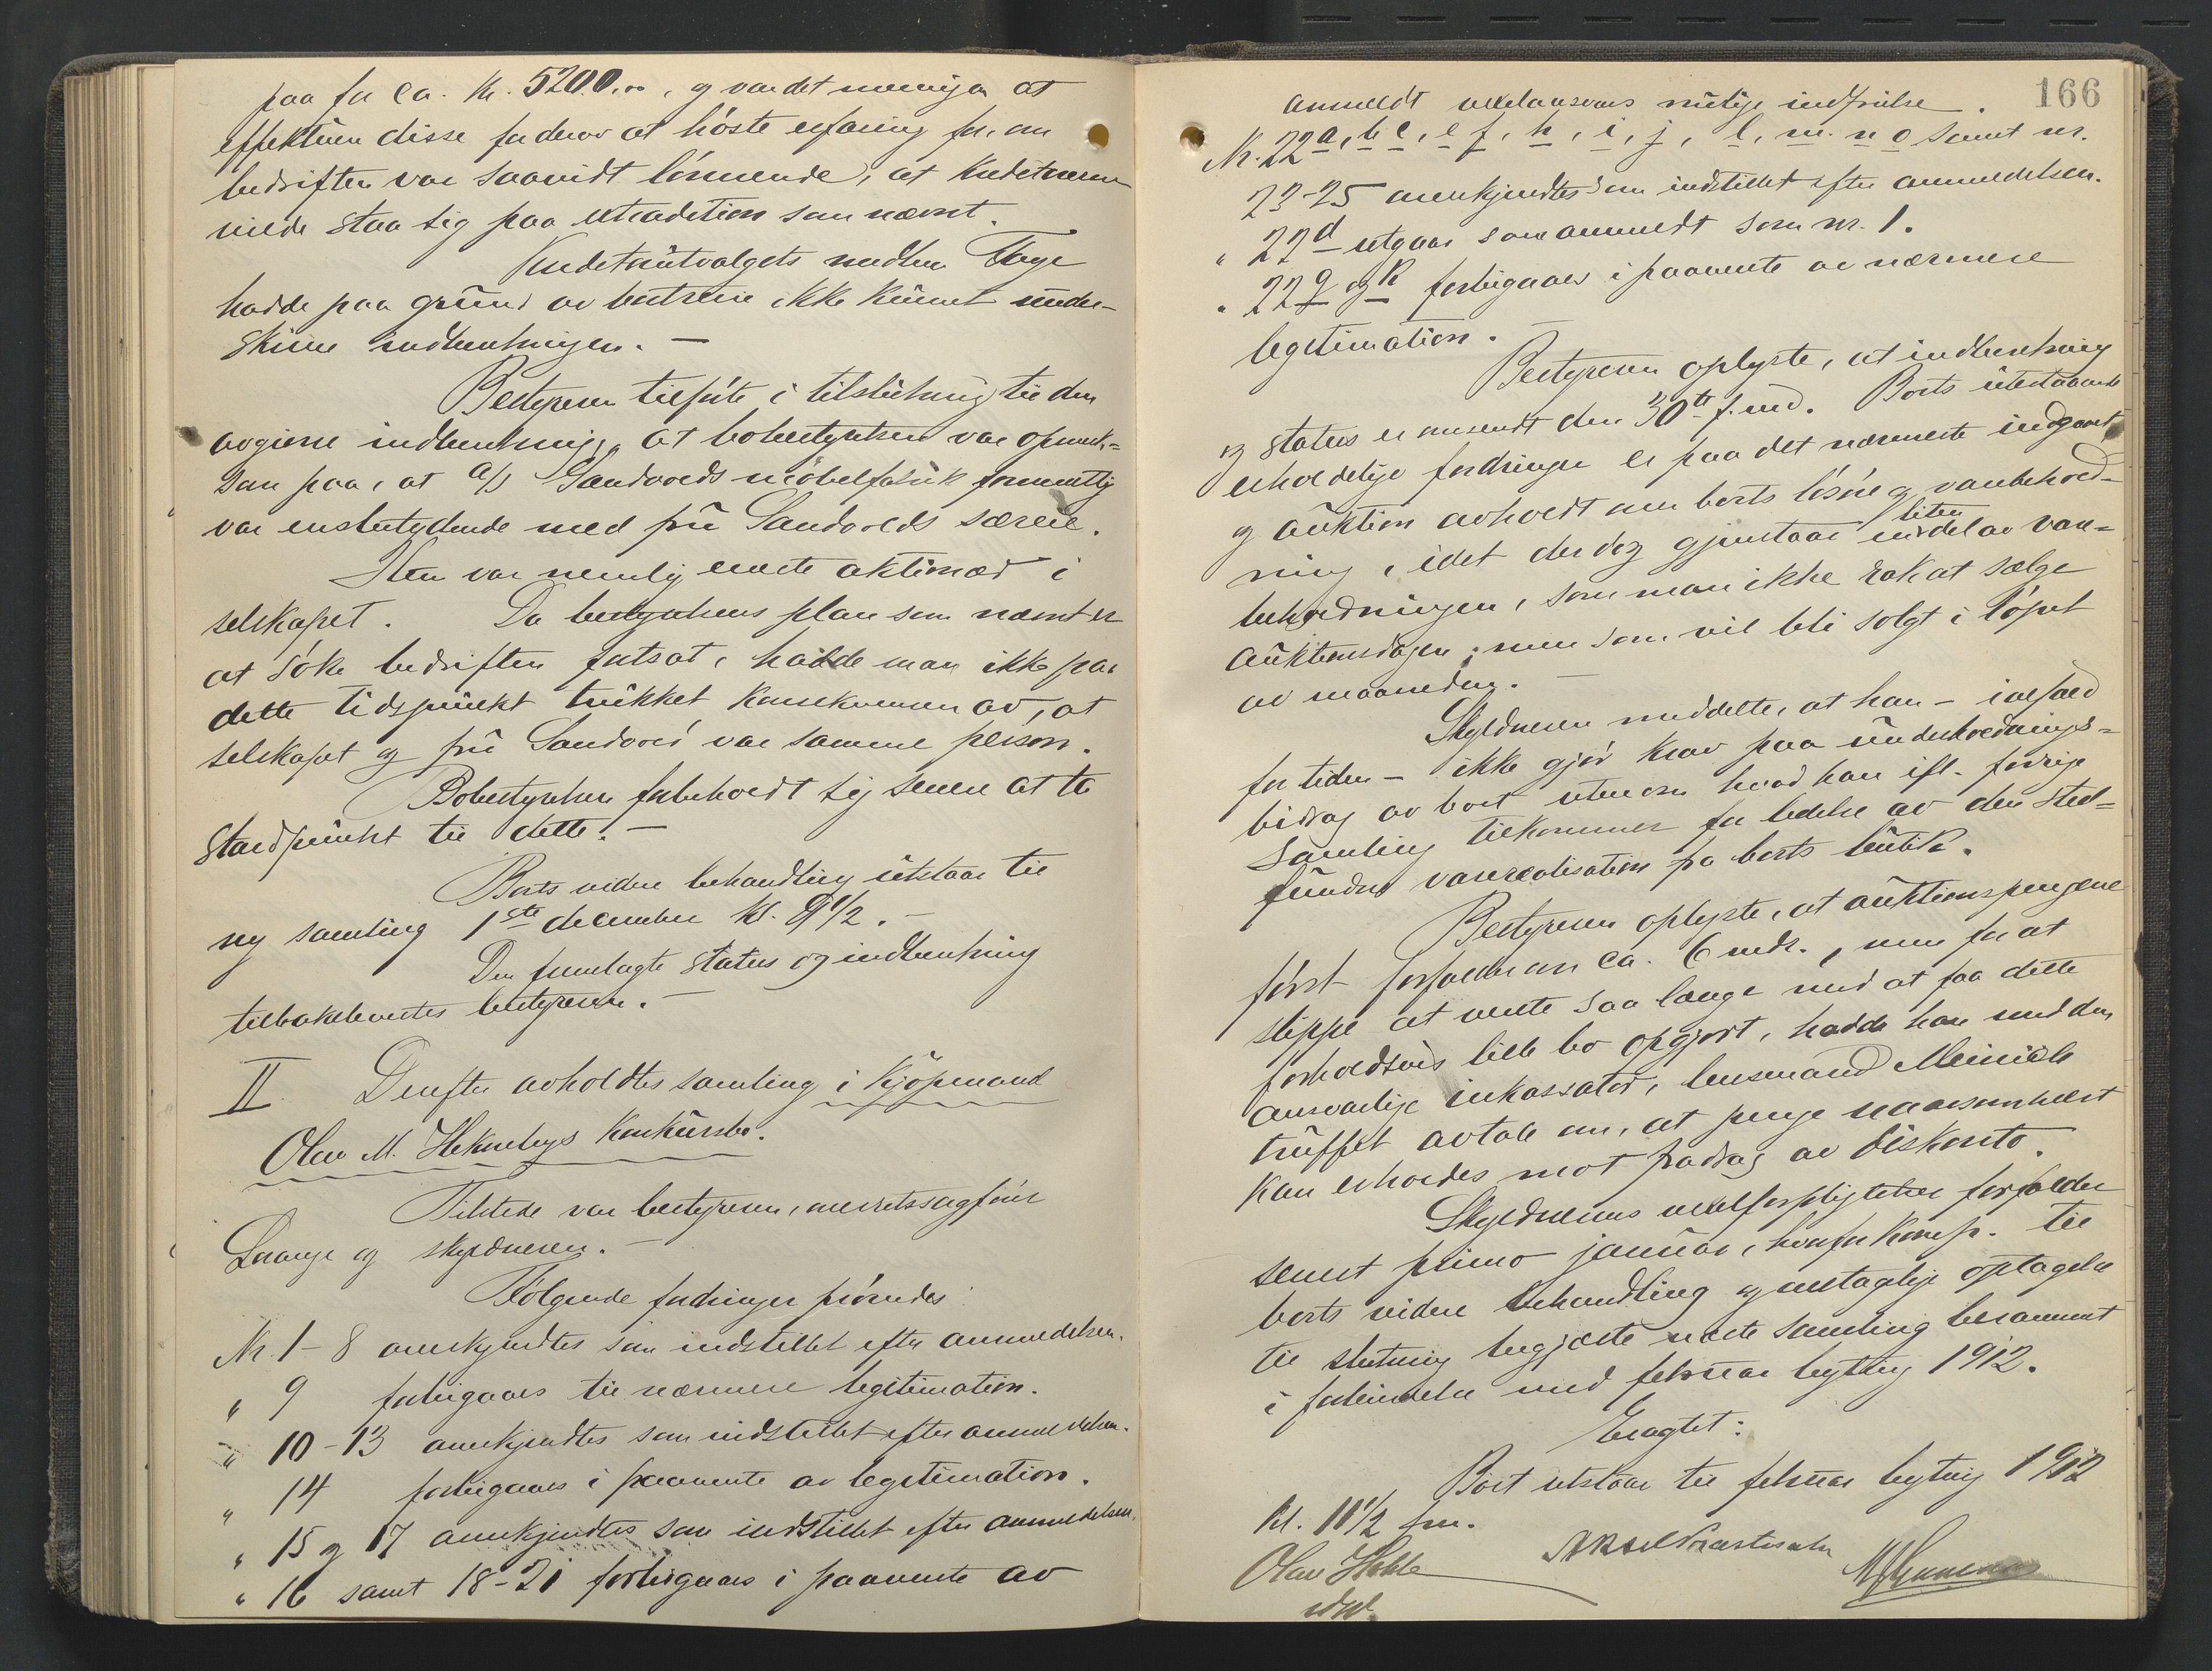 paa for ca. Kr. 5200,00, og var det meningen at
effektuere disse for derav at høste erfaring for, om
bedriften var saavidt lønnende, at kreditorene
vilde staa sig paa extradition som nævnt.
Kreditorutvalgets medlem Tharge
hadde paa grund av bortreise ikke kunnet under-
skrive indberetningen. —
Bestyreren tilføiet i tilslutning til den
avgivne indberetning, at bobestyrelsen var opmerk=
som paa, at A/S Sandvolds møbelfabrik formentlig
var ensbetydende med fru Sandvolds særeie.
Hun var nemlig eneste aktionær i
selskapet. Da bestyrelsens plan som nævnt er
at søke bedriften fortsat, hadde man ikke paa
dette tidspunkt trukket konsekvensen av, at
selskapet og fru Sandvold var samme person.
Bobestyrelsen forbeholdt sig senere at ta
standpunkt til dette. —
Boets videre behandling utstaar til
ny samling 1ste december kl. 9½. —
Den fremlagte status og indberetning
tilbakeleveres bestyreren. —
II. Derefter avholdtes samling i Kjøpmand
Olav M. Heknebys konkursbo.
Tilstede var bestyreren, overretssagfører
Lange og skyldneren. —
Følgende fordringer prøvedes:
Nr. 1–8 anerkjendtes som indstillet efter anmeldelsen.
" 9 forbigaaes til nærmere legitimation.
" 10–13 anerkjendtes som indstillet efter anmeldelsen.
" 14 forbigaaes i paavente av legitimation.
" 15 og 17 anerkjendtes som indstillet efter anmeldelsen.
" 16 samt 18–21 forbigaaes i paavente av
166
anmeldt vexelansvars mulige indfrielse.
Nr. 22a, b c, e f, h, i, j, l, m. n o samt nr.
23–25 anerkjendtes som indstillet efter anmeldelsen.
" 22d utgaar som anmeldt som nr. 1.
" 22g og k forbigaaes i paavente av nærmere
legitimation. —
Bestyreren oplyste, at indberetning
og status er omsendt den 30te f. md. Boets utestaaende
erholdelige fordringer er paa det nærmeste indgaat,
og auktion avholdt over boets løsøre og varebehold-
ning, idet der dog gjenstaar en liten del av vare=
beholdningen, som man ikke rak at sælge
auktionsdagen, men som vil bli solgt i løpet
av maaneden. —
Skyldneren meddelte, at han – ialfald
for tiden – ikke gjør krav paa underholdnings=
bidrag av boet utenom hvad han ifl. forrige
samling tilkommer for ledelse av den sted=
fundne varerealisation fra boets butik.
Bestyreren oplyste, at auktionspengene
først forfalder om ca. 6 mdr., men for at
slippe at vente saa længe med at faa dette
forholdsvis lille bo opgjort, hadde han med den
ansvarlige inkassator, lensmand Meinich
truffet avtale om, at penge naarsomhelst
kan erholdes mot fradrag av diskonto.
Skyldnerens vexelforpligtelser forfalder
senest primo januar, hvorfor komp. til
boets videre behandling og mulige optagelse
til slutning begjærte næste samling berammet
i forbindelse med februar bygting 1912.
Eragtet:
Boet utstaar til februar bygting 1912
kl. 11½ fm.
Olav Hekle